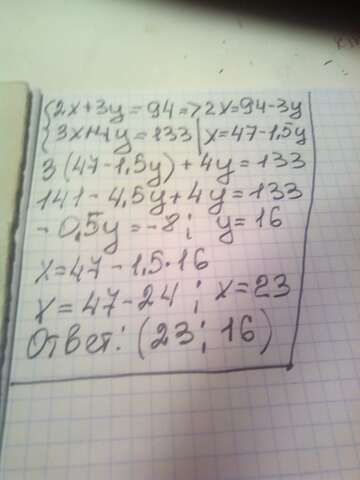 {2x+3y=94=>2x=94-3y
{3x+4y=133|x=47-1,5y
3(47-1,5y)+4y=133
141-4,5y+4y=133
-0,5y=-8; y=16
x=47-1,5·16
x=47-24; x=23
Ответ: (23; 16)